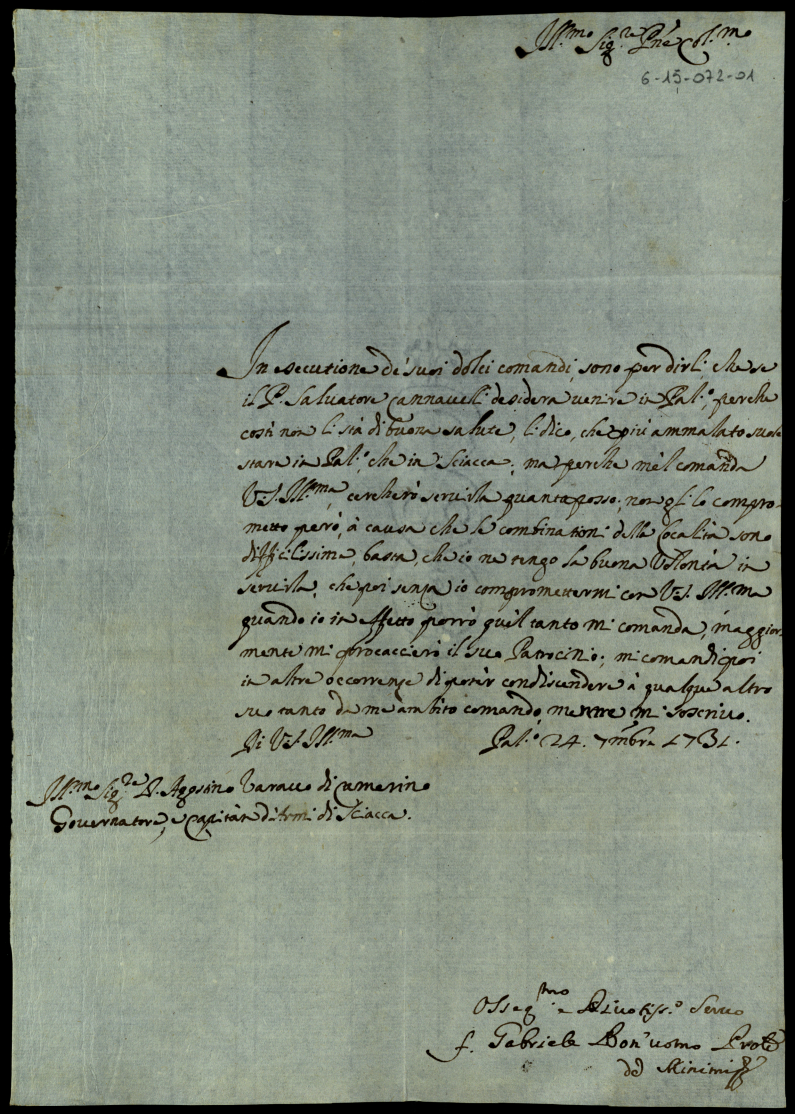 Ill.mo Sig.re P̃ne Col.mo
6-15-072-01
In esecutione de' suoi dolci comandi, sono per dirli, che se
il P. Salvatore Cannavelli desidera venire in Pal.o, perche
costì non li stà di buona salute, li dico, che più ammalato suole
stare in Pal.o, che in Sciacca; ma perche mel comanda
V.S. Ill.ma, cercherò servirla quanto posso, non gli lo compro-
metto però, à causa che le combinationi della Località sono
difficilissime, basta, che io ne tengo la buona Volontà in
servirla, che poi senza io compromettermi con V.S. Ill.ma
quando io in effetto porrò quel tanto mi comanda, maggior-
mente mi procaccierò il suo Patrocinio; mi comandi poi
in altre occorrenze di poter condiscendere à qualque altro
suo tanto da me ambito comando, mentre mi soscrivo.
Di V.S. Ill.ma Pal.o 24. 7mbre 1731.
Ill.mo Sig.re D. Agostino Varano di Camerino
Governatore, e Capitan d'Armi di Sciacca.
Osseq.mo e Divotiss.o Servo
f. Gabriele Bon'uomo Prole
de' Minimi